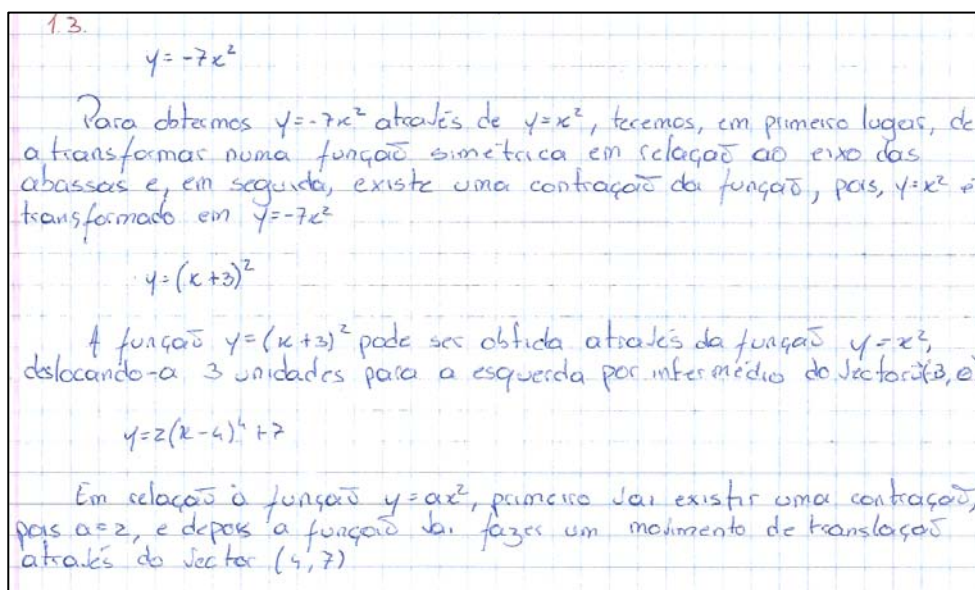 1.3.
y = -7x²
Para obtermos y=-7x² através de y=x², teremos, em primeiro lugar, de
a transformar numa função simétrica em relação ao eixo das
abassas e, em seguida, existe uma contração da função, pois, y=x² é
transformado em y=-7x²
y=(x+3)²
A função y=(x+3)² pode ser obtida através da função y=x²,
deslocando-a 3 unidades para a esquerda por intermédio do vector (-3,
y=2(x-4)⁴+7
Em relação à função y=ax², primeiro vai existir uma contração,
pois a=2, e depois a função vai fazer um movimento de translação
através do vector (4,7)